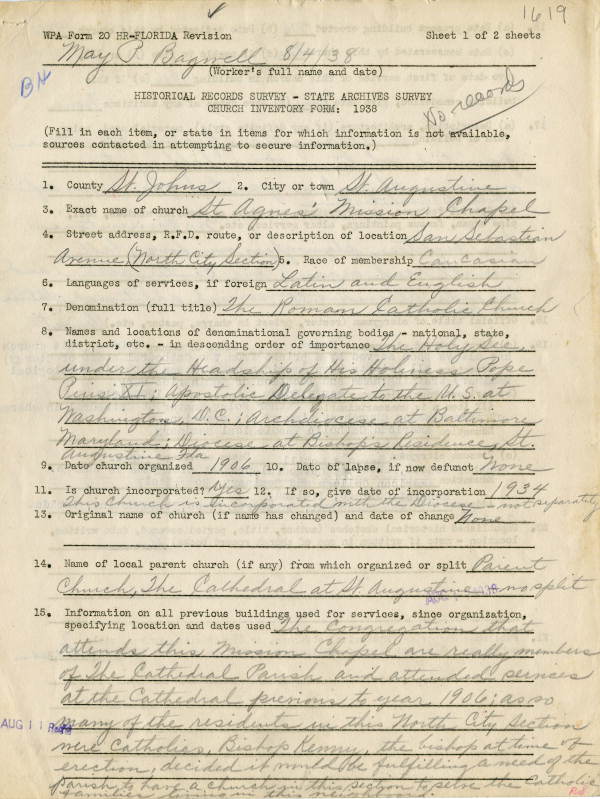 1619
WPA Form 20 HR-FLORIDA Revision Sheet 1 of 2 sheets
May P. Bagwell 8/4/38
(Worker's full name and date)
HISTORICAL RECORDS SURVEY - STATE ARCHIVES SURVEY
CHURCH INVENTORY FORM: 1938
No records
(Fill in each item, or state in items for which information is not available,
sources contacted in attempting to secure information.)
1. County St. Johns 2. City or town St. Augustine
3. Exact name of church St Agnes' Mission Chapel
4. Street address, R.F.D. route, or description of location San Sebastian
Avenue, (North City Section) 5. Race of membership Caucasian
6. Languages of services, if foreign Latin and English
7. Denomination (full title) The Roman Catholic Church
8. Names and locations of denominational governing bodies - national, state,
district, etc. - in descending order of importance The Holy See,
under the Headship of His Holiness Pope
Pius XI; Apostolic Delegate to the U.S. at
Washington, D.C.; Archdiocese at Baltimore
Maryland; Diocese at Bishop's Residence, St.
Augustine Fla
9. Date church organized 1906 10. Date of lapse, if now defunct None
11. Is church incorporated? Yes 12. If so, give date of incorporation 1934
This Church is incorporated with the Diocese - not separately
13. Original name of church (if name has changed) and date of change None
14. Name of local parent church (if any) from which organized or split Parent
Church, The Cathedral at St. Augustine - no split
15. Information on all previous buildings used for services, since organization,
specifying location and dates used The Congregation that
attends this Mission Chapel are really members
of The Cathedral Parish and attended services
at the Cathedral previous to year 1906; as so
AUG 11 many of the residents in this North City Section
were Catholics, Bishop Kenny, the bishop at time of
erection, decided it would be fulfilling a need of the
parish to have a church in this section to serve the Catholic
families living in this neighborhood